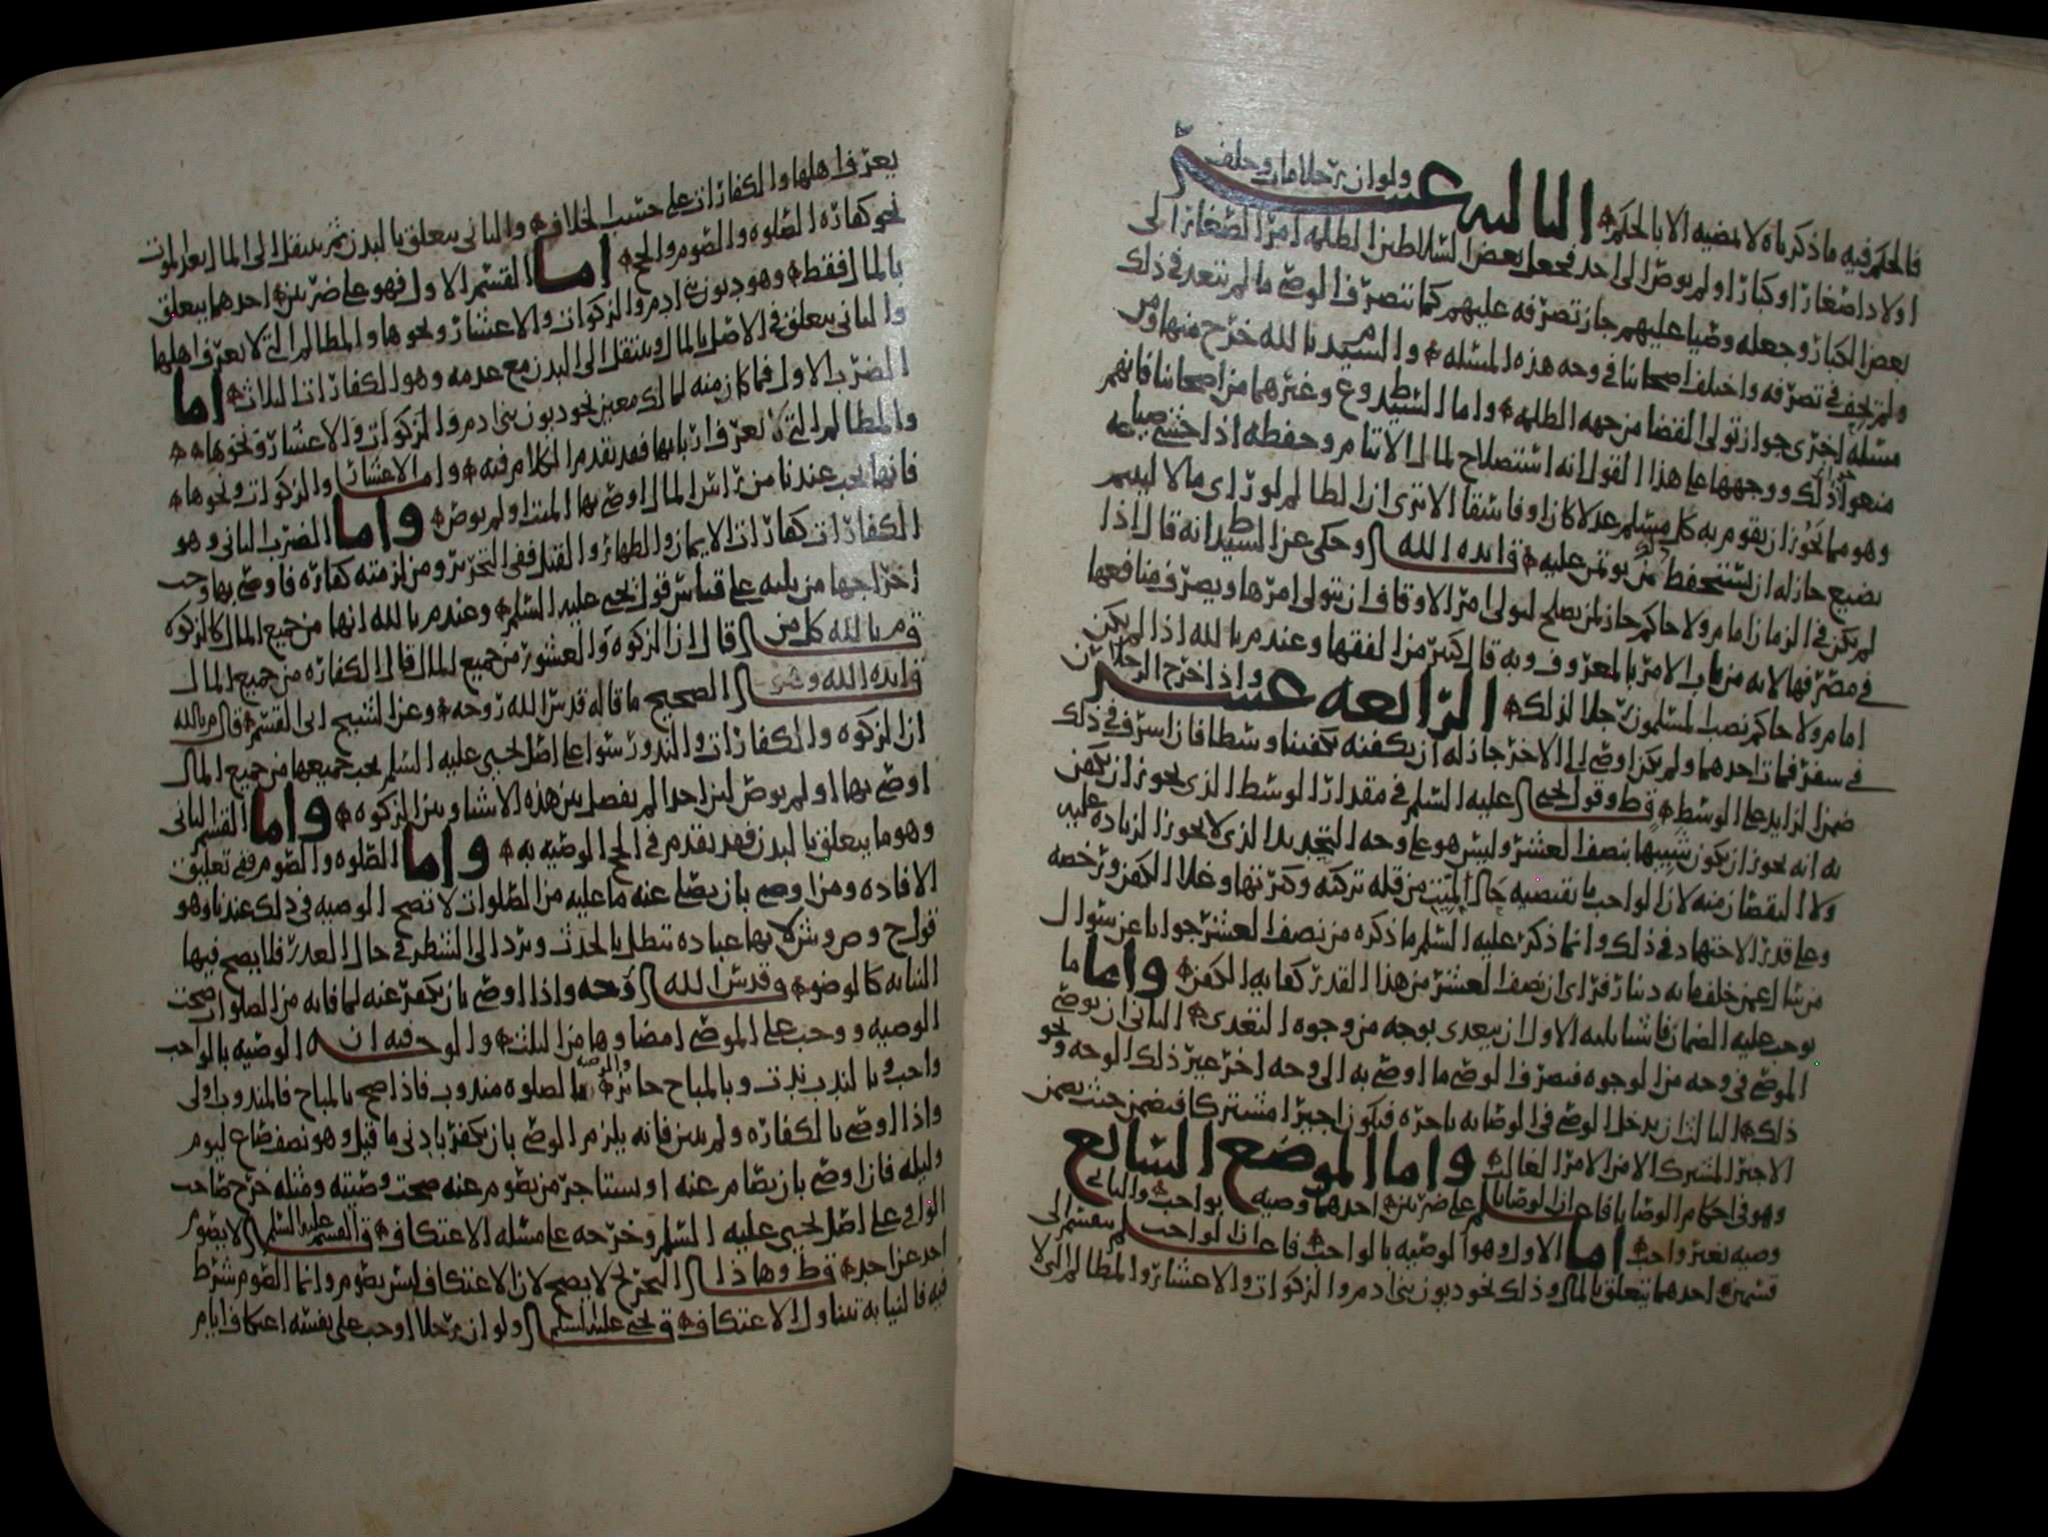 فالحكم فيه ما ذكرناه لا نمضيه الا بالحكم الثالثه عشر ولو ان رجلا مات وخلف
اولادا صغارا وكبارا ولم يوص الى احد فجعل بعض السلاطين الظلمه امر الصغار الى
بعض الكبار وجعله وصيا عليهم جاز تصرفه عليهم كما يتصرف الوصي ما لم يتعد في ذلك
ولم يحف في تصرفه واختلف اصحابنا في وجه هذه المسئله والسيد م بالله خرج منها ومن
مسئله اخرى جواز تولي القضا من جهه الظلمه واما السيد ط و ع وغيرهما من اصحابنا فانهم
منعوا ذلك ووجهها على هذا القول انه استصلاح لمال الايتام وحفظه اذا خشي ضياعه
وهو مما يجوز ان يقوم به كل مسلم عدلا كان او فاسقا الا ترى ان الظالم لو راى مالا ليتيم
يضيع جاز له ان يستحفظ من يوتمن عليه ق ايده الله وحكى عن السيد ط انه قال اذا
لم يكن في الزمان امام ولا حاكم جاز لمن يصلح لتولي امر الاوقاف ان يتولى امرها ويصرف منافعها
في مصرفها لانه من باب الامر بالمعروف وبه قال كثير من الفقها وعند م بالله اذا لم يكن
امام ولا حاكم نصب المسلمون رجلا لذلك الرابعه عشر واذا خرج الرجلان
في سفر فمات احدهما ولم يكن اوصى الى الاخر جاز له ان يكفنه تكفينا وسطا فان اسرف في ذلك
ضمن الزايد على الوسط ق ط وقول يحيى عليه السلم في مقدار الوسط الذي يجوز ان يكفن
به انه يجوز ان يكون شبيها بنصف العشر وليس هو على وجه التحديد الذي لا يجوز الزياده عليه
ولا النقصان منه لان الواجب ما يقتضيه حال الميت من قله تركته وكثرتها وغلا الكفن ورخصه
وعلى قدر الاجتهاد في ذلك وانما ذكر عليه السلم ما ذكره من نصف العشر جوابا عن سؤال
من سال عمن خلف مايه دينار فراى ان نصف العشر من هذا القدر كفايه الكفن واما ما
يوجب عليه الضمان فاشيا ثلثه الاول ان يتعدى بوجه من وجوه التعدي الثاني ان يوصي
الموصي في وجه من الوجوه فيصرف الوصي ما اوصي به الى وجه اخر غير ذلك الوجه ونحو
ذلك الثالث ان يدخل الوصي في الوصايه باجره فيكون اجيرا مشتركا فيضمن حيث يضمن
الاجير المشترك الا من الامر الغالب واما الموضع السابع
وهو في احكام الوصايا فاعلم ان الوصايا على ضربين احدهما وصيه بواجب والثاني
وصيه بغير واجب اما الاول وهو الوصيه بالواجب فاعلم ان الواجب ينقسم الى
قسمين احدهما يتعلق بالمال وذلك نحو ديون بني ادم والزكوات والاعشار والمظالم التي لا
يعرف اهلها والكفارات على حسب الخلاف والثاني يتعلق بالبدن ثم ينتقل الى المال بعد الموت
نحو كفاره الصلوه والصوم والحج اما القسم الاول فهو على ضربين احدهما يتعلق
بالمال فقط وهو ديون بني ادم والزكوات والاعشار ونحوها والمظالم التي لا يعرف اهلها
والثاني يتعلق في الاصل بالمال وينتقل الى البدن مع عدمه وهو الكفارات الثلاث اما
الضرب الاول فما كان منه لمالك معين نحو ديون بني ادم والزكوات والاعشار ونحوها
والمظالم التي لا يعرف اربابها فقد تقدم الكلام فيه واما الاعشار والزكوات ونحوها
فانها تجب عندنا من راس المال اوصى بها الميت او لم يوص واما الضرب الثاني وهو
الكفارات كفارات الايمان والظهار والقتل ففي التحرير ومن لزمته كفاره فاوصى بها وجب
اخراجها من ثلثه على قياس قول يحيى عليه السلم وعند م بالله انها من جميع المال كالزكوه
ق م بالله كل من قال ان الزكوه والعشور من جميع المال قال الكفاره من جميع المال
ق ايده الله وهو الصحيح ما قاله قدس الله روحه وعن الشيخ ابي القسم قال م بالله
ان الزكوه والكفارات والنذور سوا على اصل يحيى عليه السلم يجب جميعها من جميع المال
اوصى بها او لم يوص لان احدا لم يفصل بين هذه الاشيا وبين الزكوه واما القسم الثاني
وهو ما يتعلق بالبدن فقد تقدم في الحج الوصيه به واما الصلوه والصوم ففي تعليق
الافاده ومن اوصى بان يصلى عنه ما عليه من الصلوات لا تصح الوصيه في ذلك عندنا وهو
قول ح و ص و ش لانها عباده تبطل بالحدث وترد الى الشطر في حال العذر فلا يصح فيها
النيابه كالوضوء ق قدس الله روحه واذا اوصى بان يكفر عنه لما فاته من الصلوات صحت
الوصيه ووجب على الموصى امضاوها من الثلث والوجه فيه ان الوصيه بالواجب
واجب وبالندب ندب وبالمباح جائز والوصيه بالصلوه مندوب فاذا صح بالمباح فالمندوب اولى
واذا اوصى بالكفاره ولم يبين فانه يلزم الوصي بان يكفر بادنى ما قيل وهو نصف صاع ليوم
وليله فان اوصى بان يصام عنه او يستاجر من يصوم عنه صحت وصيته ومثله خرج صاحب
الوافي على اصل يحيى عليه السلم وخرجه على مسئله الاعتكاف ق القسم عليه السلم لا يصوم
احد عن احد ق ط وهذا التخريج لا يصح لان الاعتكاف ليس بصوم وانما الصوم شرط
فيه فالنيابه تتناول الاعتكاف ق يحيى عليه السلم ولو ان رجلا اوجب على نفسه اعتكاف ايام